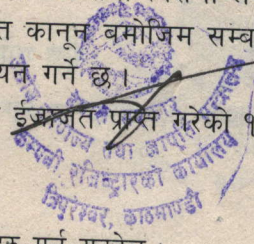 त कानून बमोजिम सम्ब
यन गर्ने छ।
ईजाजत प्राप्त गरेको १
तथा आपूर्ति
कम्पनी रजिष्ट्रारको कार्यालय
त्रिपुरेश्वर, काठमाण्डौ